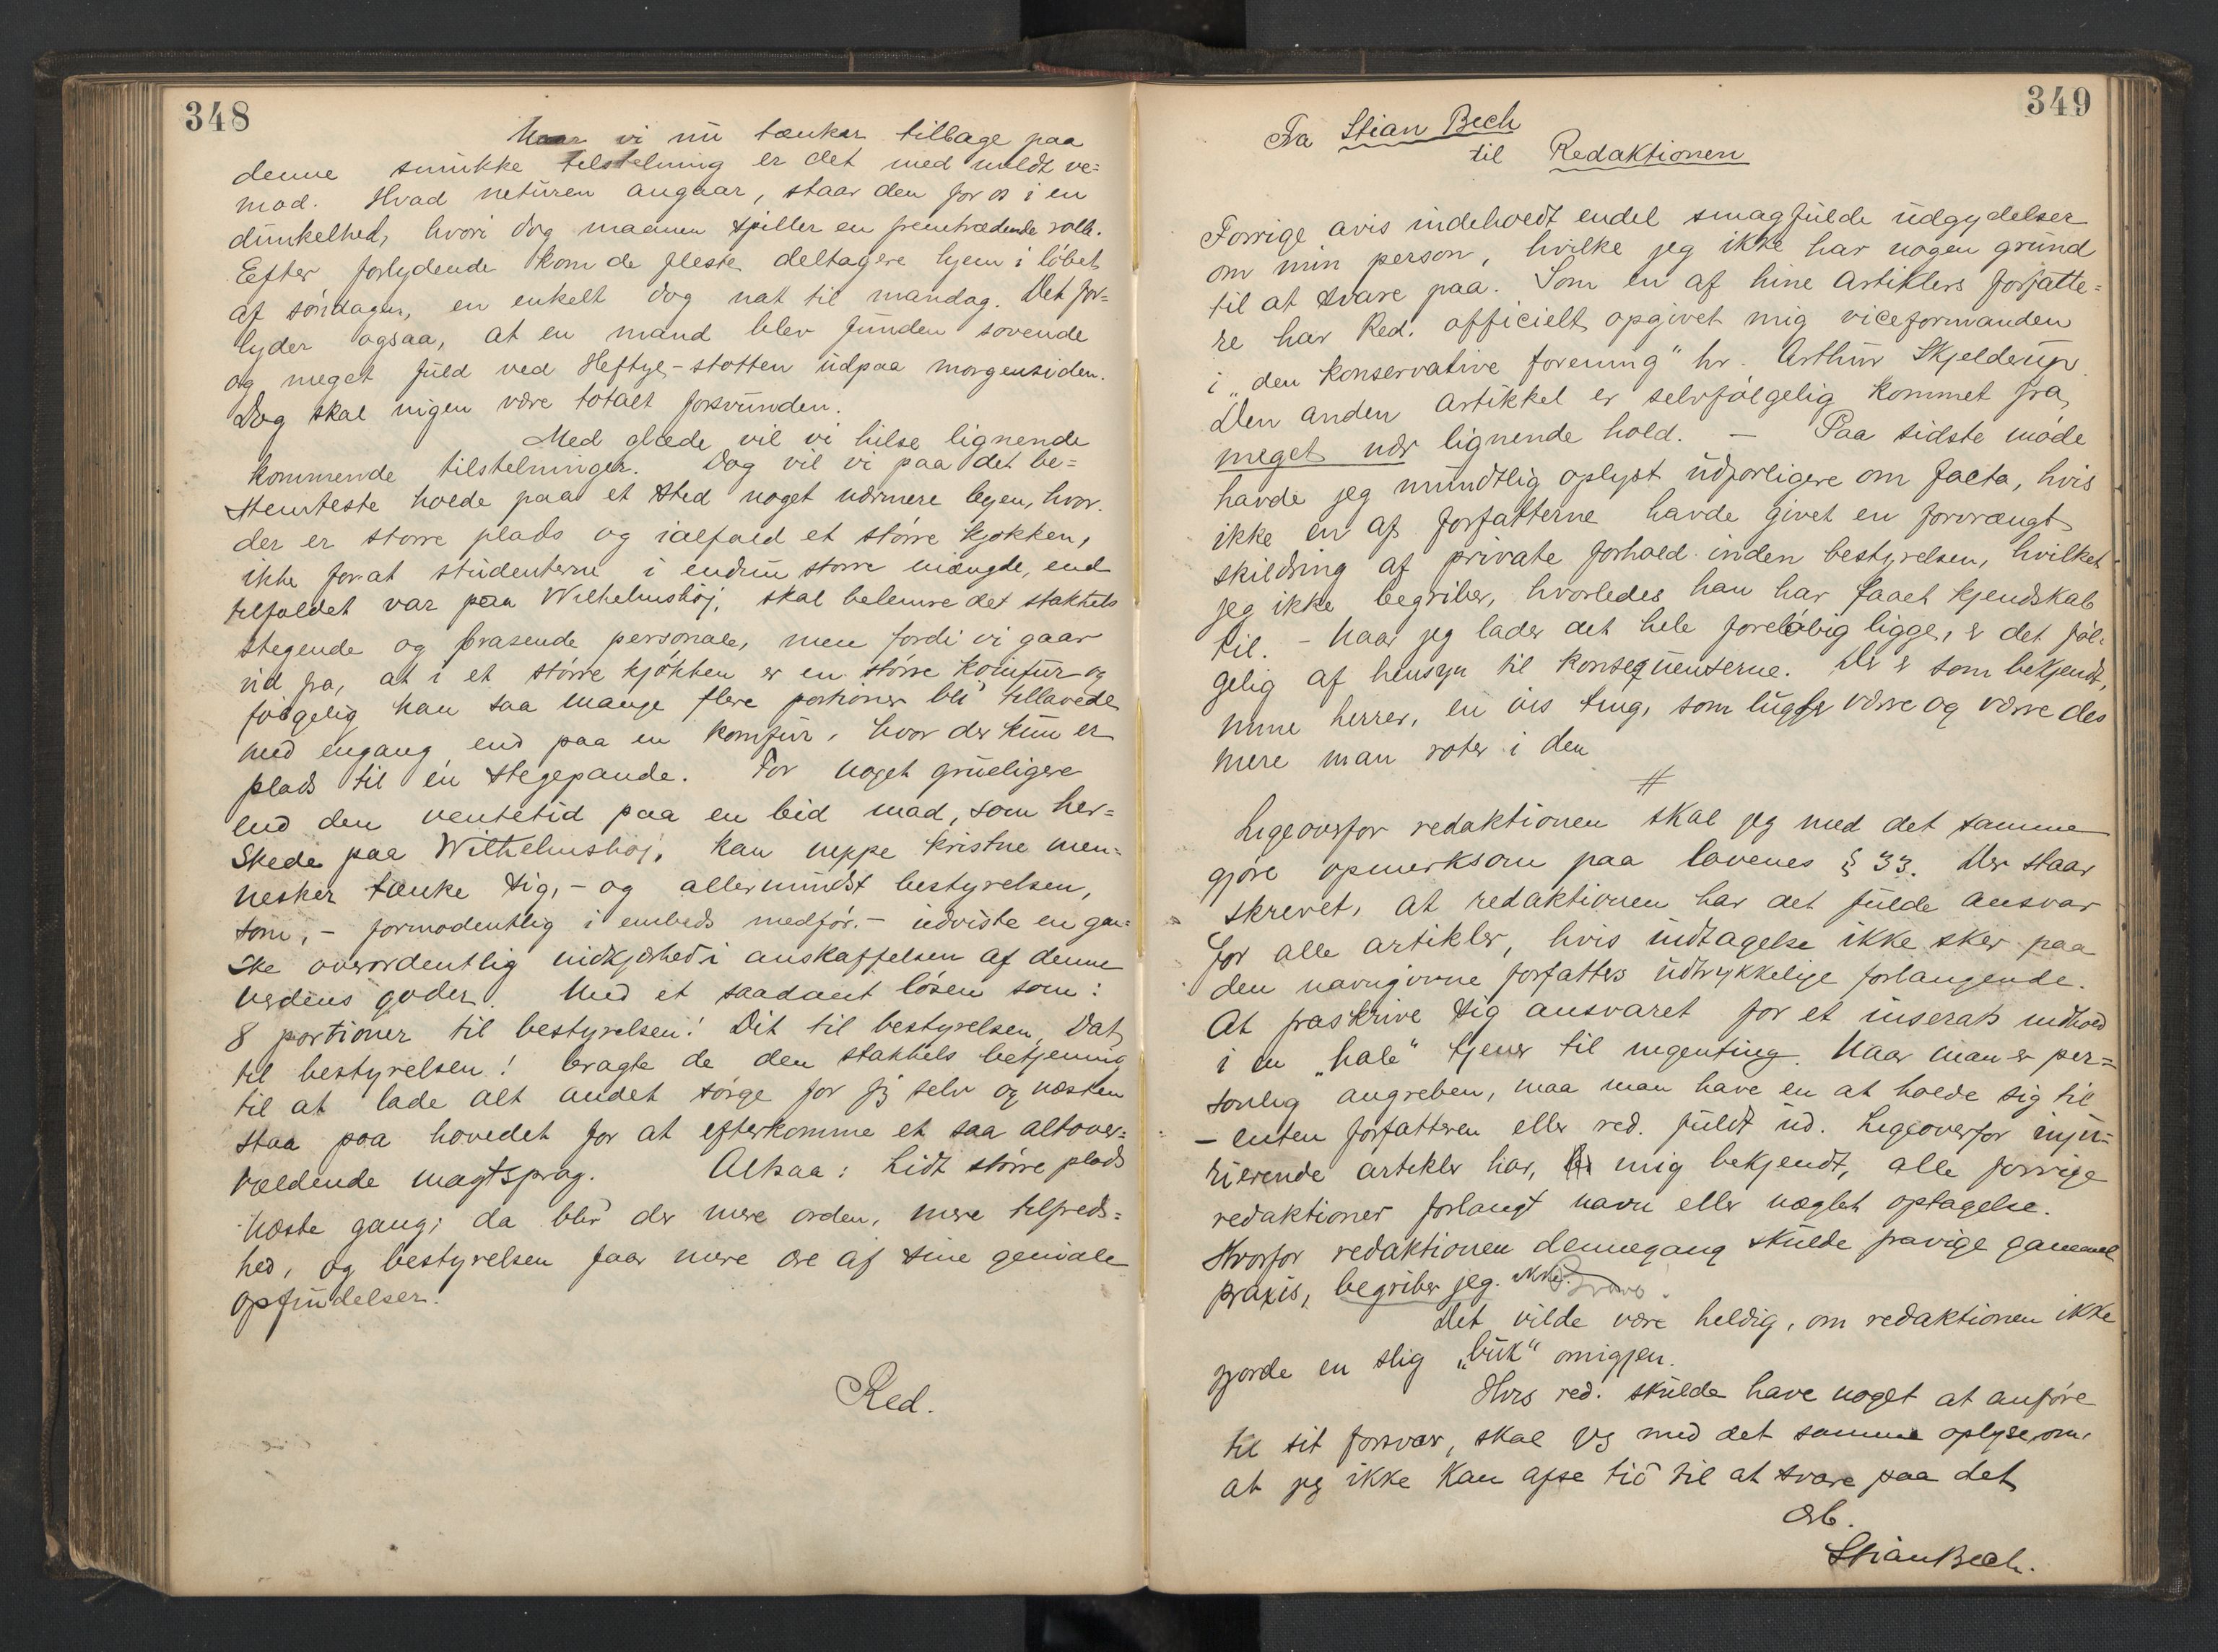 348
Naar vi nu tænker tilbage paa
denne smukke tilstelning er det med mildt ve=
mod. Hvad neturen angaar, staar den for os i en
dunkelhed, hvori dog maanen spiller en fremtrædende rolle.
Efter forlydende kom de fleste deltagere hjem i løbet
af søndagen, en enkelt dog nat til mandag. Det for=
lyder ogsaa, at en mand blev funden sovende
og meget fuld ved Heftye-støtten udpaa morgensiden.
Dog skal ingen være totalt forsvunden.
Med glæde vil vi hilse lignende
kommende tilstelninger. Dog vil vi paa det be=
stemteste holde paa et sted noget nærmere byen, hvor
der er større plads og ialfald et større kjøkken,
ikke for at studenterne i endnu større mængde, end
tilfældet var paa Wilhelmshøj, skal belemre det stakkels
stegende og brasende personale, men fordi vi gaar
ud fra, at i et større kjøkken er en større komfur og
følgelig kan saa mange flere portioner bli tillavede
med engang, end paa en komfur, hvor der kun er
plads til én stegepande. For noget grueligere
end den ventetid paa en bid mad, som her=
skede paa Wilhelmshøj, kan neppe kristne men=
nesker tænke sig, - og allermindst bestyrelsen,
som, - formodentlig i embeds medfør. - udviste en gan=
ske overordentlig nidkjærhed i anskaffelsen af denne
verdens goder. Med et saadant løsen som:
8 portioner til bestyrelsen! Dit til bestyrelsen, Dat
til bestyrelsen! bragte de den stakkels betjening
til at lade alt andet sørge for sig selv og næsten
staa paa hovedet for at efterkomme et saa altover=
vældende magtsprog. Altsaa: Lidt større plads
næste gang; da blir der mere orden, mere tilfreds=
hed, og bestyrelsen faar mere ære af sine geniale
opfindelser.
Red.
349
Fra Stian Bech
til Redaktionen
Forrige avis indeholdt endel smagfulde udgydelser
om min person, hvilke jeg ikke har nogen grund
til at svare paa. Som en af hine artiklers forfatte=
re har Red. officielt opgivet mig viceformanden
i "den konservative forening" hr. Arthur Skjelderup.
Den anden artikkel er selvfølgelig kommet fra
meget nær lignende hold. - Paa sidste møde
havde jeg mundtlig oplyst udførligere om facta, hvis
ikke en af forfatterne havde givet en forvrængt
skildring af private forhold inden bestyrelsen, hvilket
jeg ikke begriber, hvorledes han har faaet kjendskab
til. - Naar jeg lader det hele foreløbig ligge, er det føl-
gelig af hensyn til konsequenserne. Der er som bekjendt,
mine herrer, en vis ting, som lugter værre og værre des
mere man roter i den
#
Ligeoverfor redaktionen skal jeg med det samme
gjøre opmerksom paa lovenes § 33. Der staar
skrevet, at redaktionen har det fulde ansvar
for alle artikler, hvis indtagelse ikke sker paa
den navngivne forfatters udtrykkelige forlangende.
At fraskrive sig ansvaret for et inserats indhold
i en "hale" tjener til ingenting. Naar man er per=
sonlig angreben, maa man have en at holde sig til
- enten forfatteren eller red. fuldt ud. Ligeoverfor inju=
rierende artikler har, mig bekjendt, alle forrige
redaktioner forlangt navn eller nægtet optagelse.
Hvorfor redaktionen dennegang skulde fravige gammel
praxis, begriber jeg.
Det vilde være heldig, om redaktionen ikke
gjorde en slig "buk" omigjen.
Hvis red. skulde have noget at anføre
til sit forsvar, skal jeg med det samme oplyse om,
at jeg ikke kan afse tid til at svare paa det
Ærb.
Stian Bech.